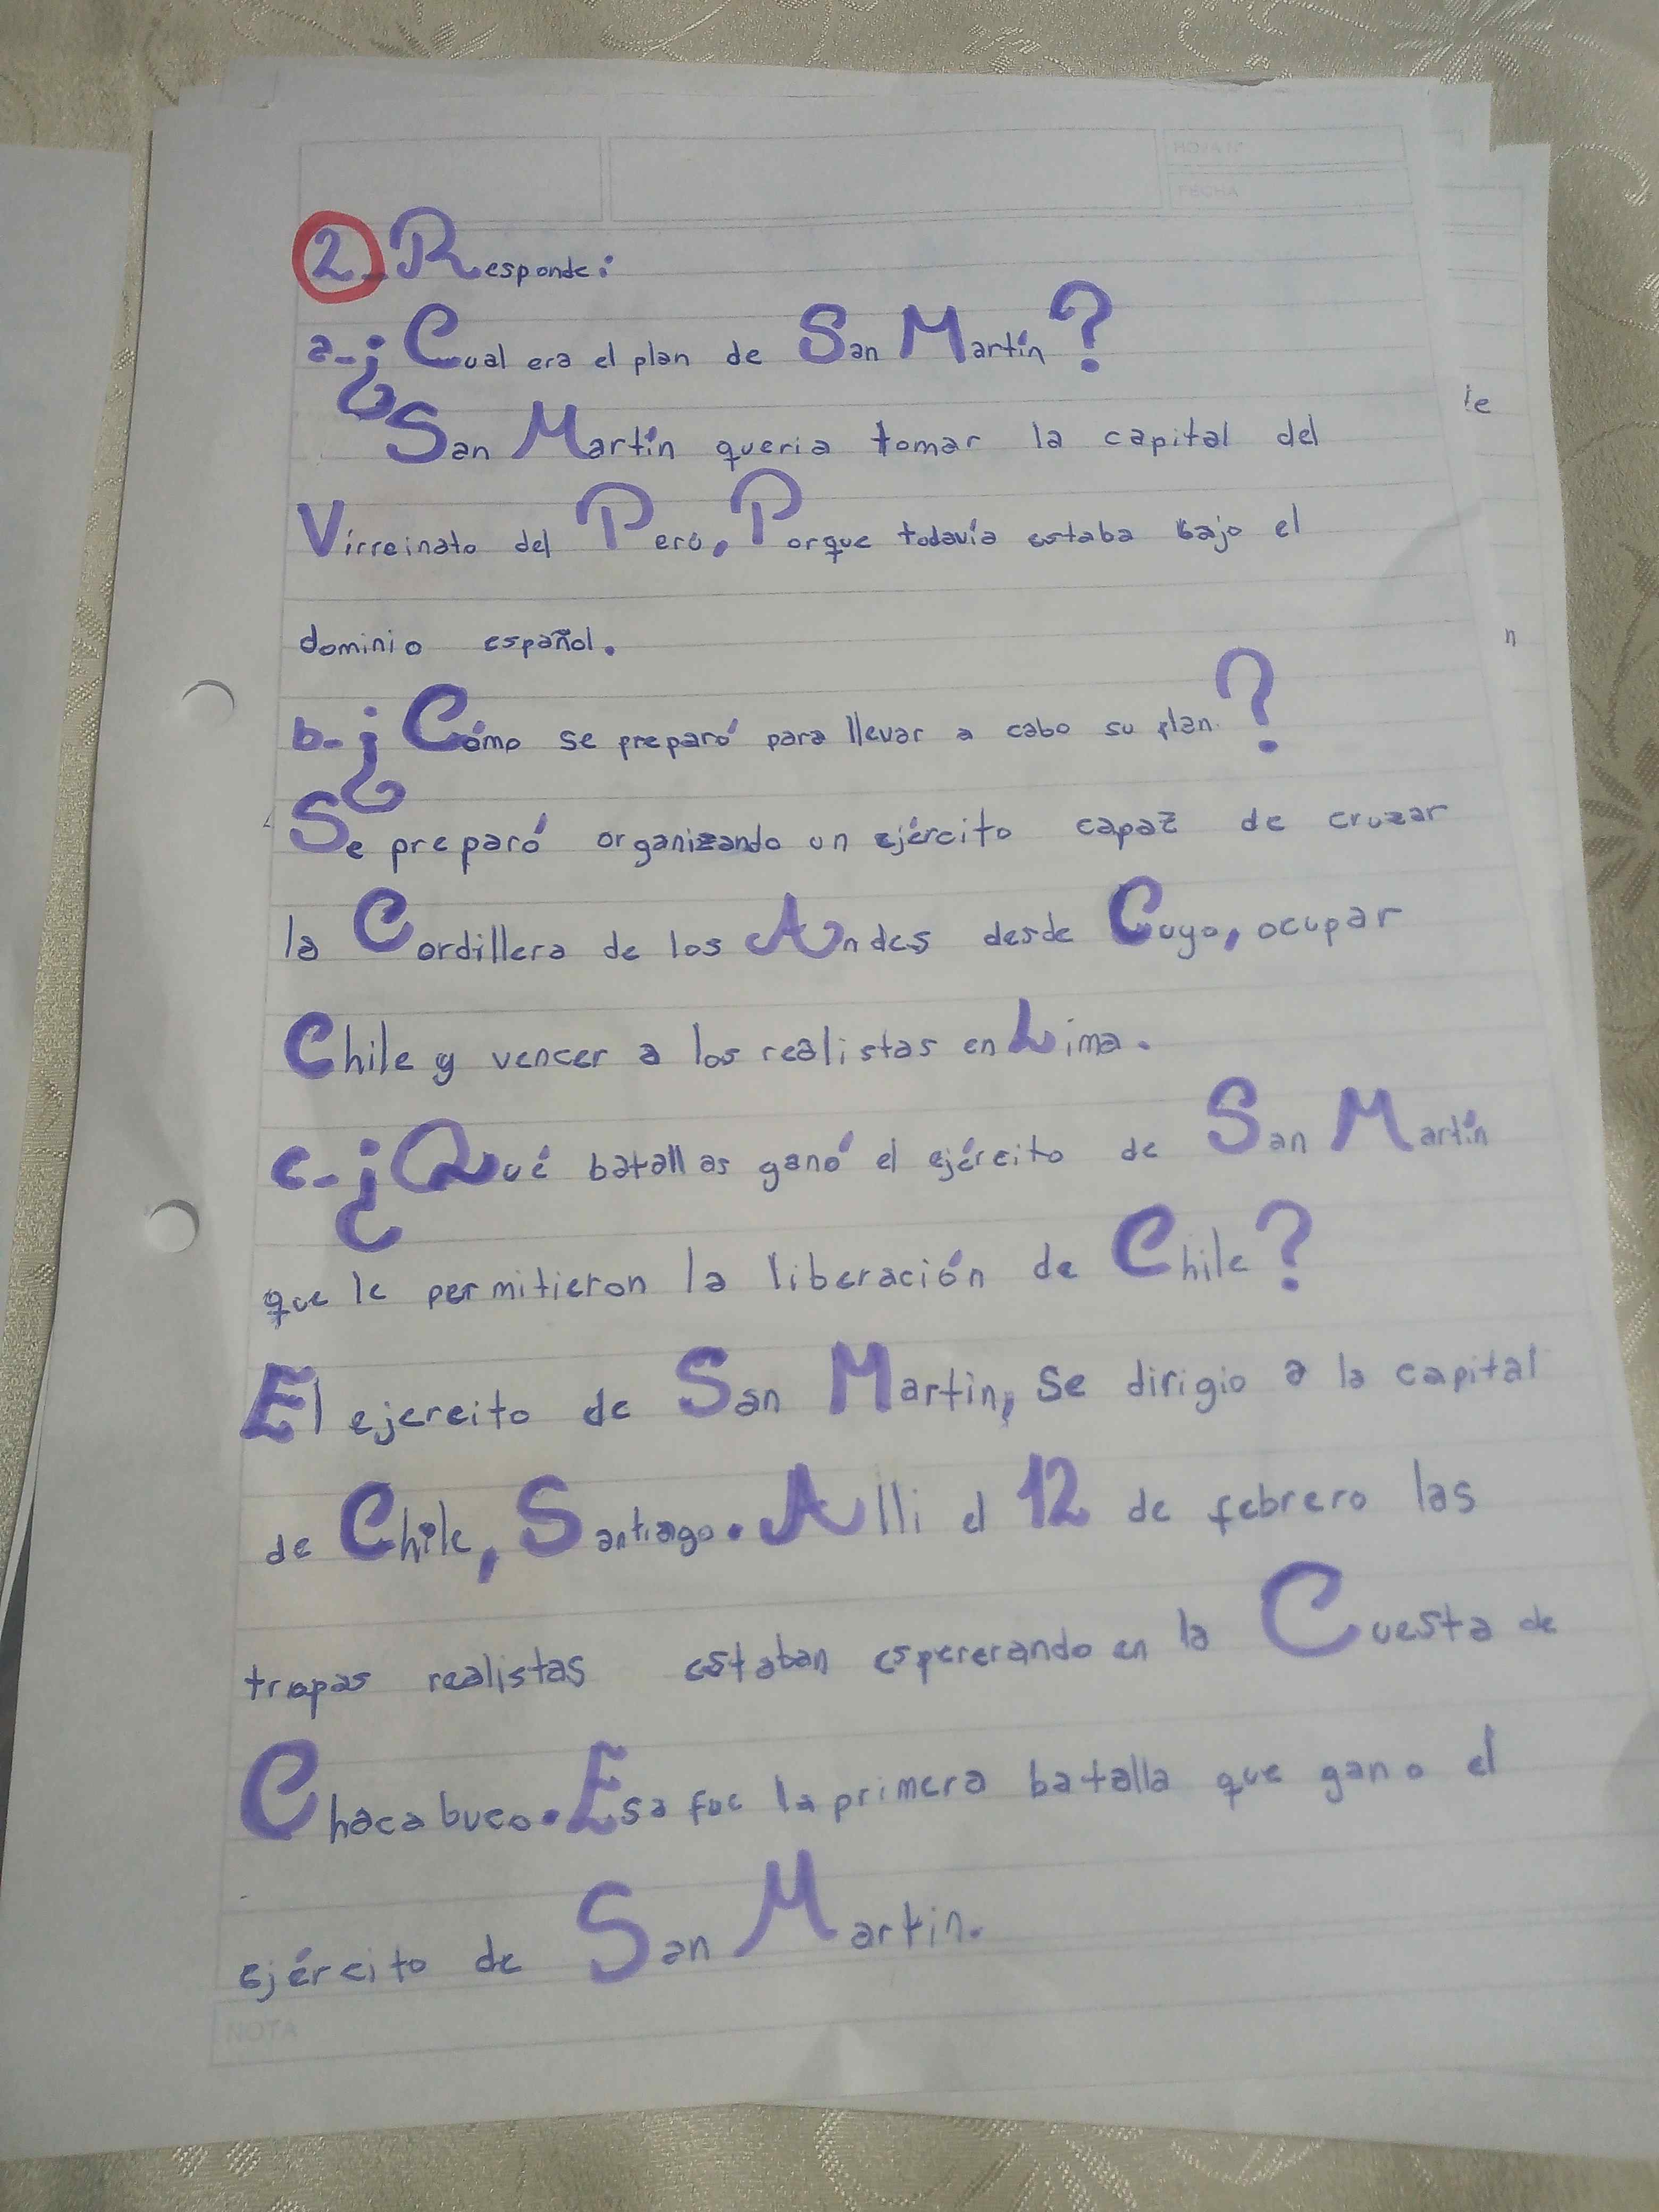 HOJA N°
FECHA
2- Responde:
a-¿Cual era el plan de San Martín?
San Martín queria tomar la capital del
Virreinato del Perú, Porque todavía estaba bajo el
dominio español.
b-¿Cómo se preparó para llevar a cabo su plan?
Se preparó organizando un ejército capaz de cruzar
la Cordillera de los Andes desde Cuyo, ocupar
Chile y vencer a los realistas en Lima.
c-¿Qué batallas ganó el ejército de San Martín
que le permitieron la liberación de Chile?
El ejercito de San Martin, se dirigio a la capital
de Chile, Santiago. Alli el 12 de febrero las
tropas realistas estaban espererando en la Cuesta de
Chacabuco. Esa fue la primera batalla que gano el
ejército de San Martin.
NOTA
le
n